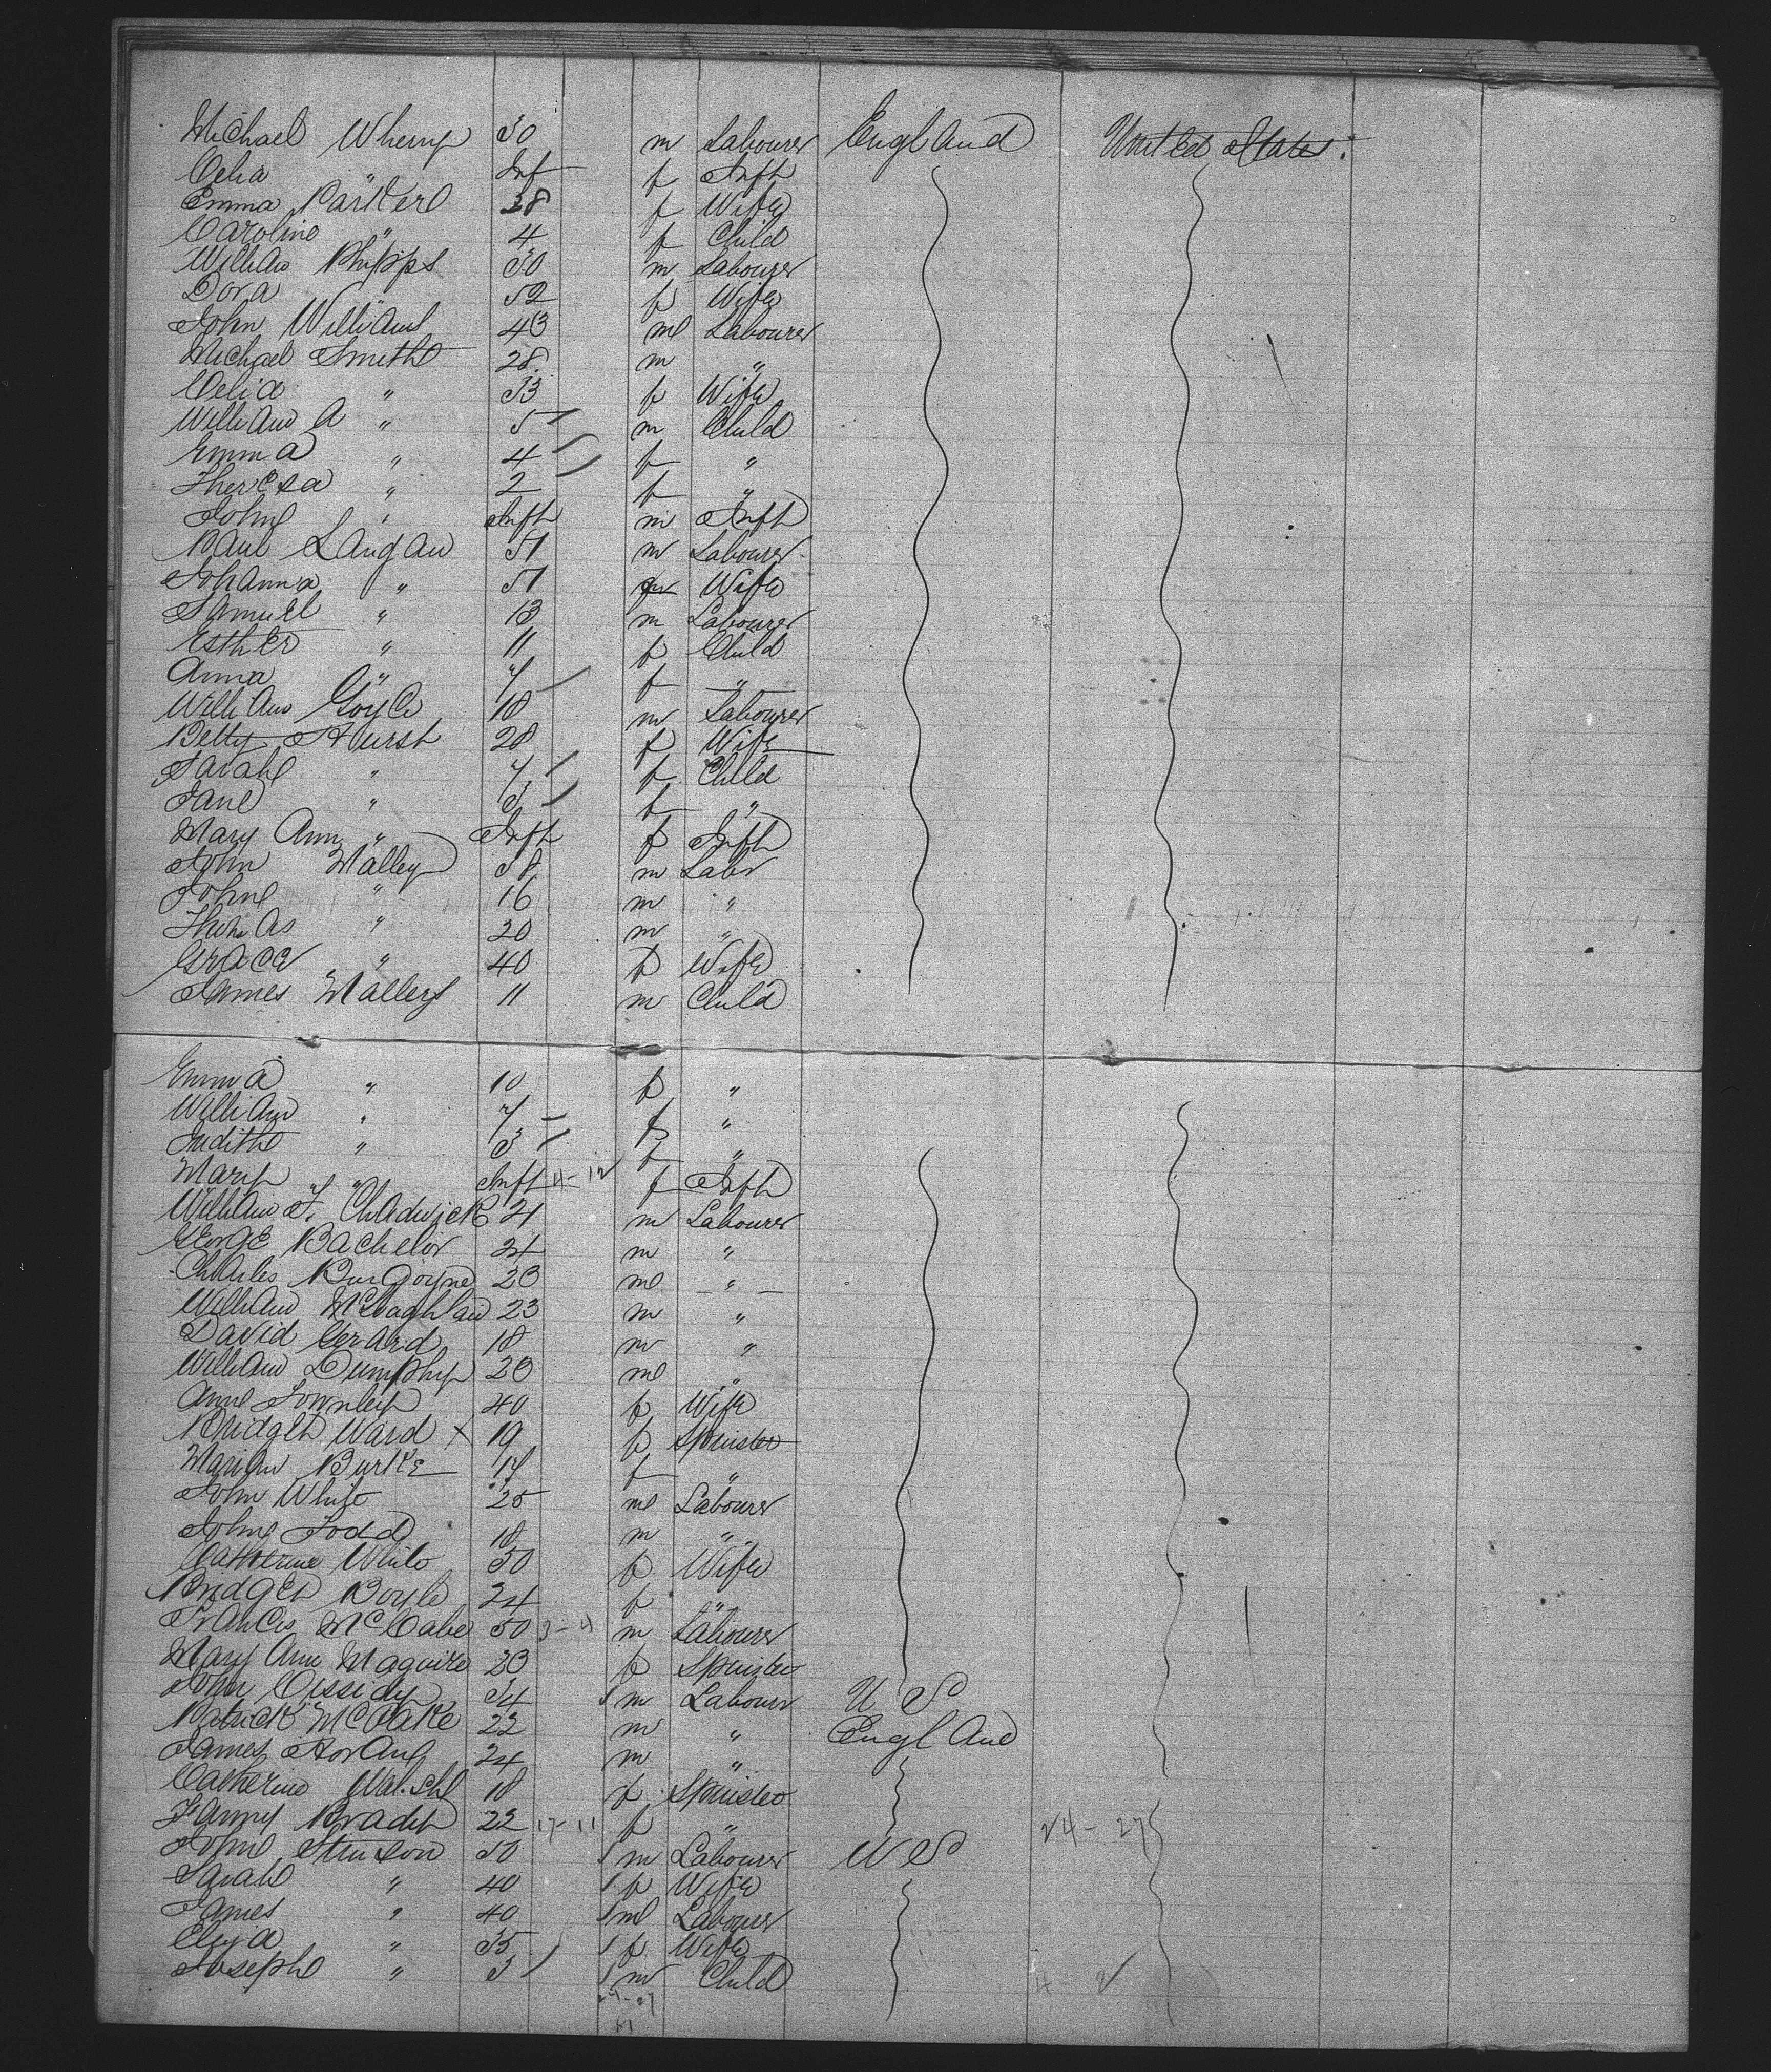 Michael Wherry 30 m Labourer England United States
Celia " Inf f Infh
Emma Parker 38 f Wife
Caroline " 4 f Child
William Phipps 30 m Labourer
Dora " 52 f Wife
John Williams 43 m Labourer
Michael Smith 28 m "
Celia " 33 f Wife
William A " 5 m Child
Emma " 4 f "
Theresa " 2 f "
John " Infh m Infh
Paul Langan 51 m Labourer
Johanna " 51 f Wife
Samuel " 13 m Labourer
Esther " 11 f Child
Anna " 7 f "
William 18 m Labourer
Betty Hurst 28 f Wife
Sarah " 7 f Child
Jane " 3 f "
Mary Ann " Infh f Infh
John Malley 38 m Labr
John " 16 m "
Thomas " 20 m "
Grace " 40 f Wife
James Mallery 11 m Child
Emma " 10 f "
William " 7 f "
Judith " 3 f "
Mary " Infh 4-12 f Infh
William F. Chadwick 21 m Labourer
George Bachelor 24 m "
Charles Burgoyne 23 m "
William McLoaghlan 23 m "
David Gerard 18 m "
William Dumphy 23 m "
Anne Townley 40 f Wife
Bridget Ward x 19 f Spinster
Marian Burke 17 f "
John White 25 m Labourer
John Todd 18 m "
Catherine White 50 f Wife
Bridget Boyle 24 f "
Francis McCabe 50 3-4 m Labourer
Mary Ann Maguire 23 f Spinster
John Cissidy 34 1 m Labourr U S
Patrick 22 m " England
James Horan 24 m "
Catherine Walsh 18 f Spinster
Fanny Brady 22 17-11 f " 24-27
John Stinson 50 1 m Labourer U S
Sarah " 40 1 f Wife
James " 40 1 m Labourer
Eliza " 35 1 f Wife
Joseph " 3 1 m Child